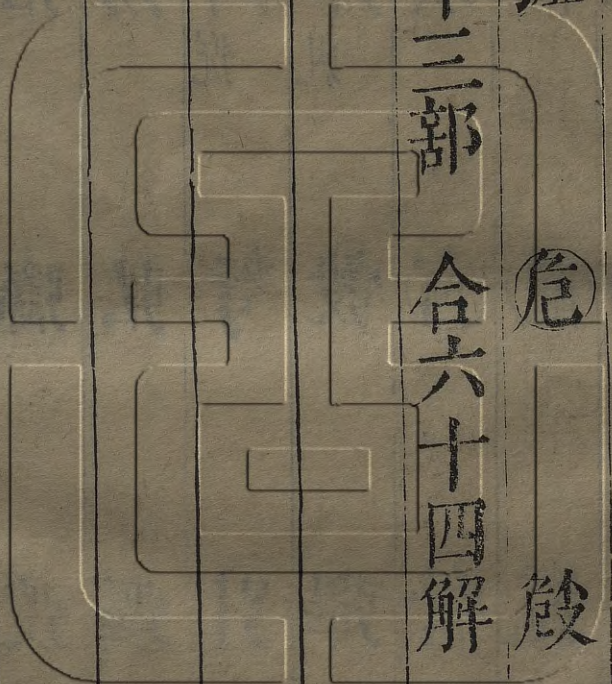 危
十三部 合六十四解